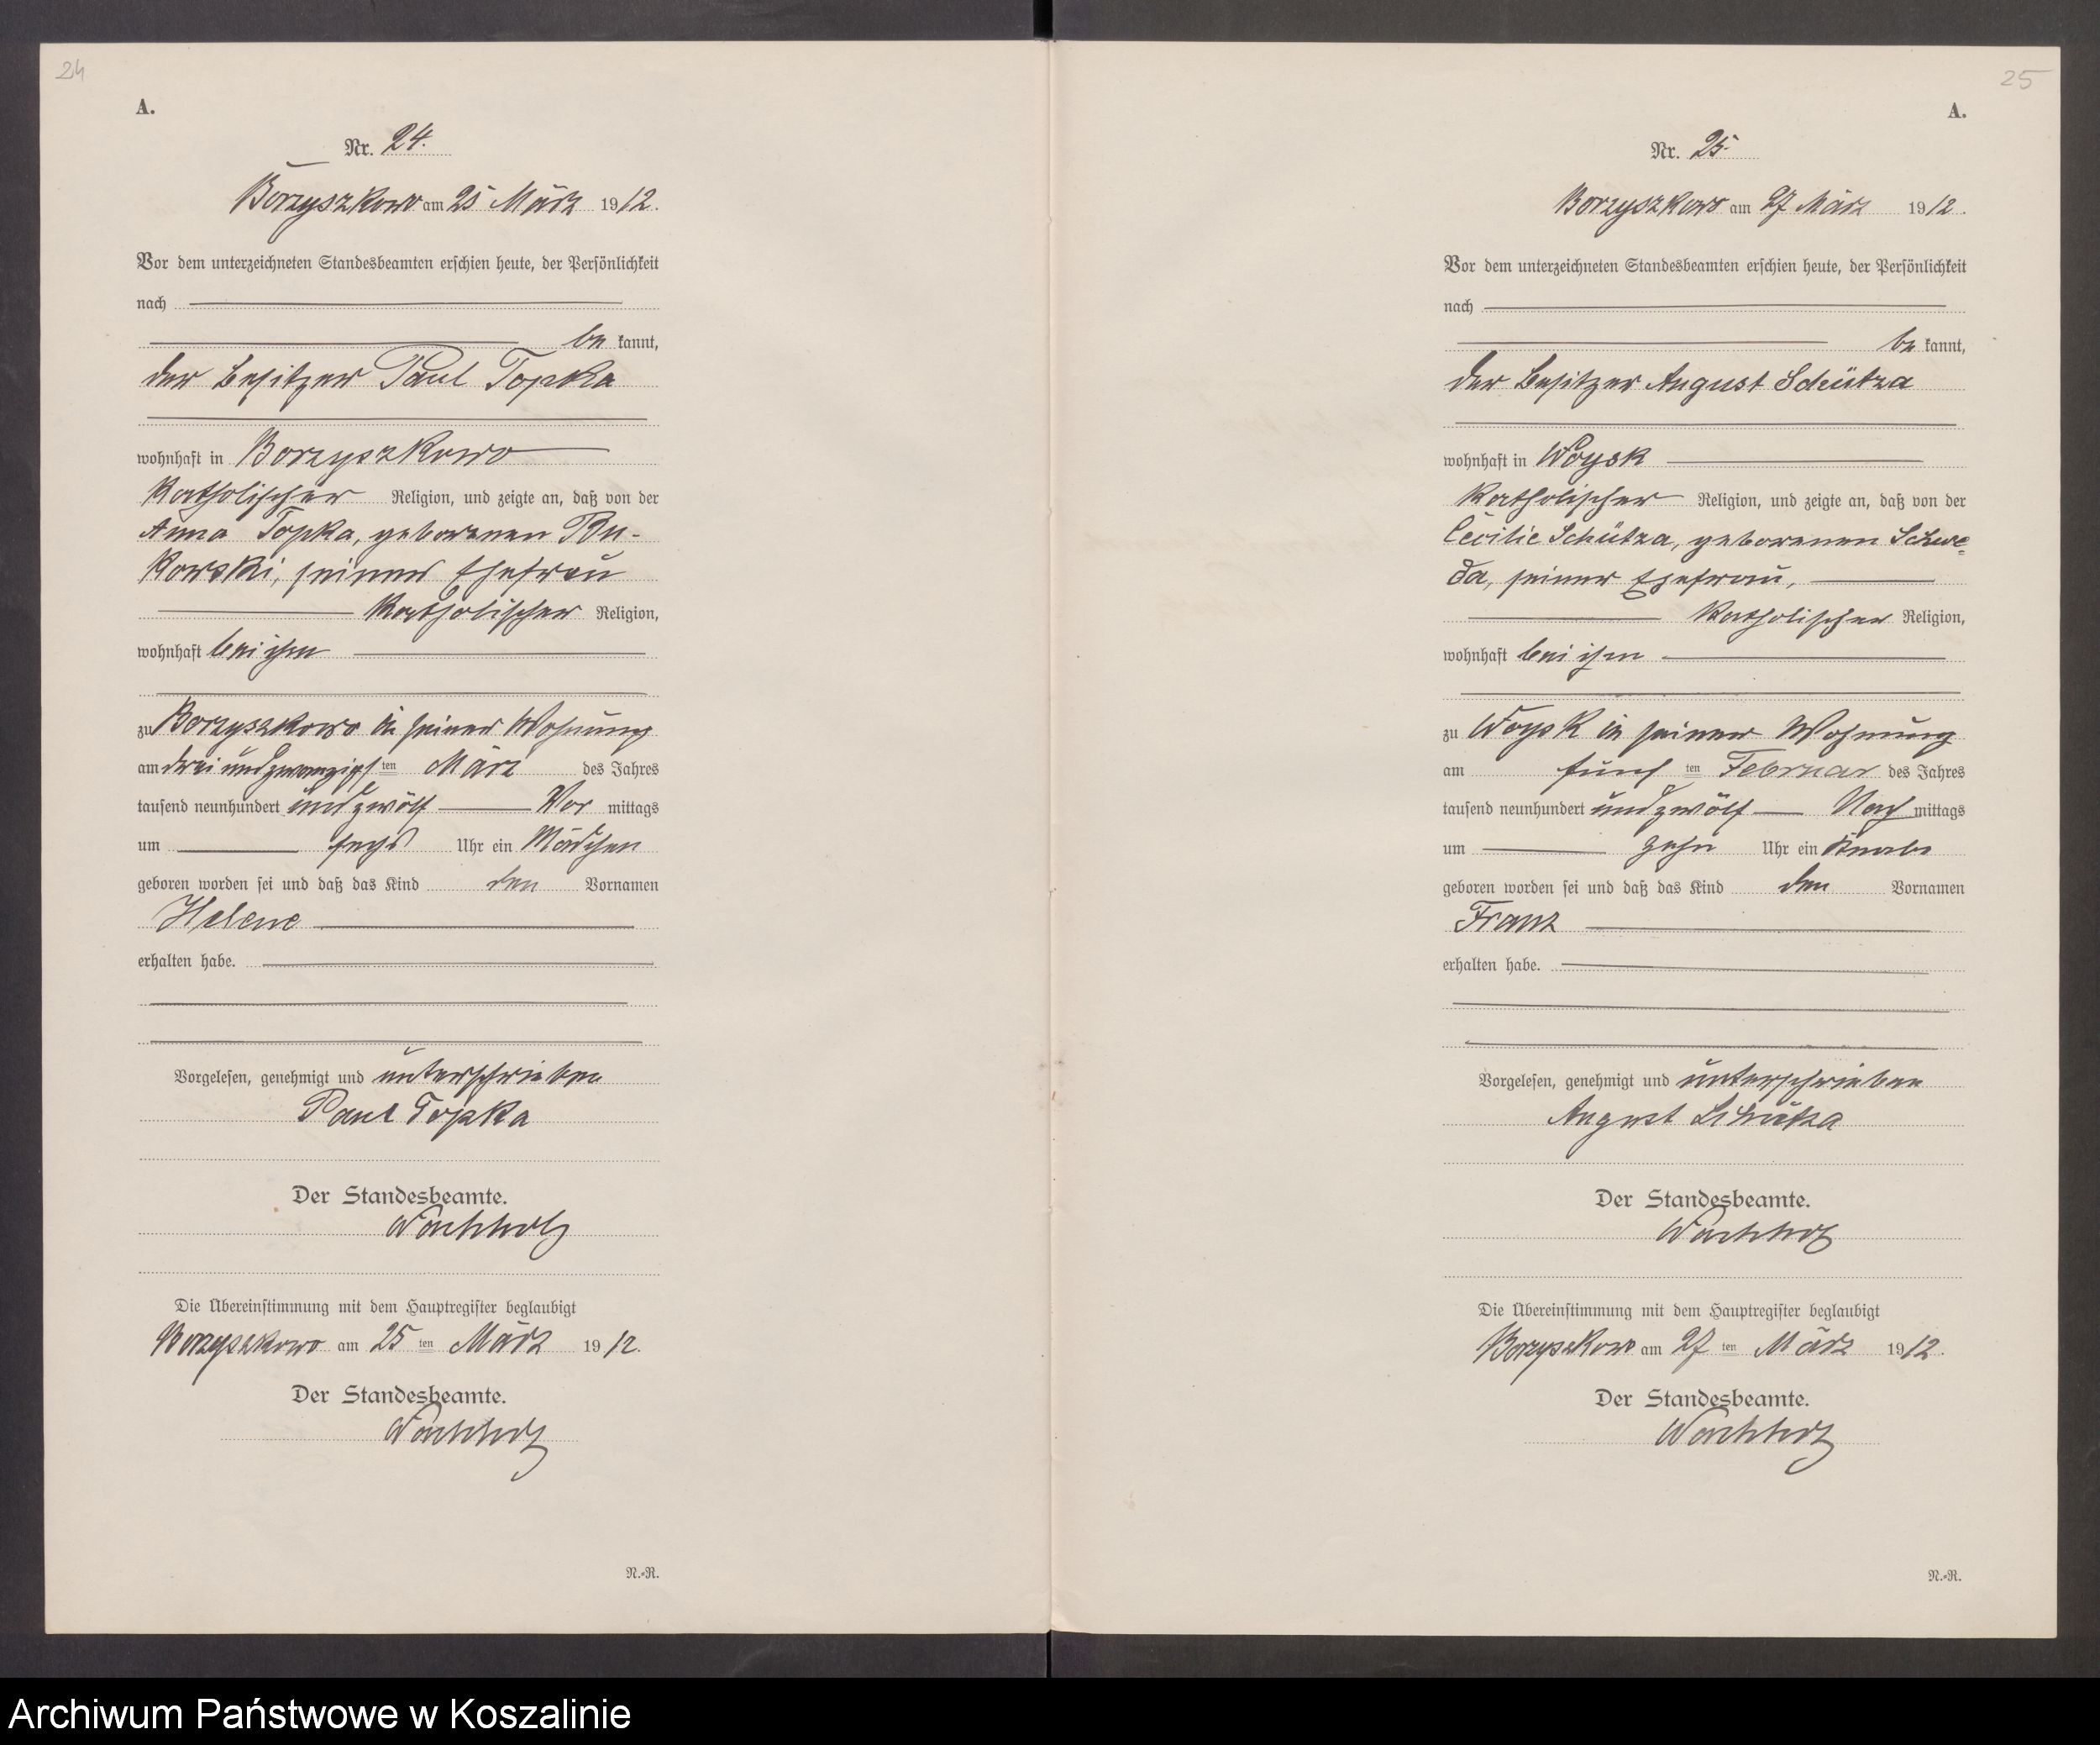 24
A.
Nr. 24.
Borzyszkowo am 25 März 1912.
Vor dem unterzeichneten Standesbeamten erschien heute, der Persönlichkeit
nach
be kannt,
der Besitzer Paul Topka
wohnhaft in Borzyszkowo
katholischer Religion, und zeigte an, daß von der
Anna Topka, geborenen Bu-
kowski, seiner Ehefrau
katholischer Religion,
wohnhaft bei ihm
zu Borzyszkowo in seiner Wohnung
am dreiundzwanzigsten März des Jahres
tausend neunhundert undzwölf Vor mittags
um sechs Uhr ein Mädchen
geboren worden sei und daß das Kind den Vornamen
Helene
erhalten habe.
Vorgelesen, genehmigt und unterschrieben
Paul Topka
Der Standesbeamte.
Wachholz
Die Übereinstimmung mit dem Hauptregister beglaubigt
Borzyszkowo am 25 ten März 1912.
Der Standesbeamte.
Wachholz
N.-R.
25
A.
Nr. 25.
Borzyszkowo am 27 März 1912.
Vor dem unterzeichneten Standesbeamten erschien heute, der Persönlichkeit
nach
be kannt,
der Besitzer August Schütza
wohnhaft in Woysk
katholischer Religion, und zeigte an, daß von der
Cecilie Schütza, geborenen Schwe-
da, seiner Ehefrau,
katholischer Religion,
wohnhaft bei ihm
zu Woysk in seiner Wohnung
am fünf ten Februar des Jahres
tausend neunhundert undzwölf Nach mittags
um zehn Uhr ein Knabe
geboren worden sei und daß das Kind den Vornamen
Franz
erhalten habe.
Vorgelesen, genehmigt und unterschrieben
August Schütza
Der Standesbeamte.
Wachholz
Die Übereinstimmung mit dem Hauptregister beglaubigt
Borzyszkowo am 27 ten März 1912.
Der Standesbeamte.
Wachholz
N.-R.
Archiwum Państwowe w Koszalinie